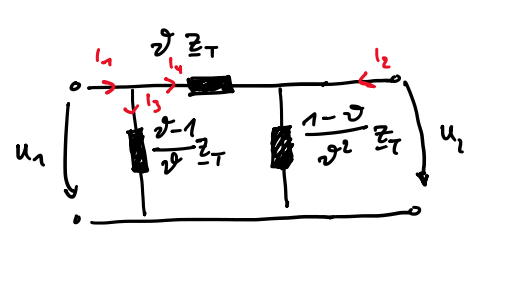 ϑ Z_T
i₁ i₄ i₂
i₃
u₁ (ϑ-1)/ϑ Z_T (1-ϑ)/ϑ² Z_T u₂